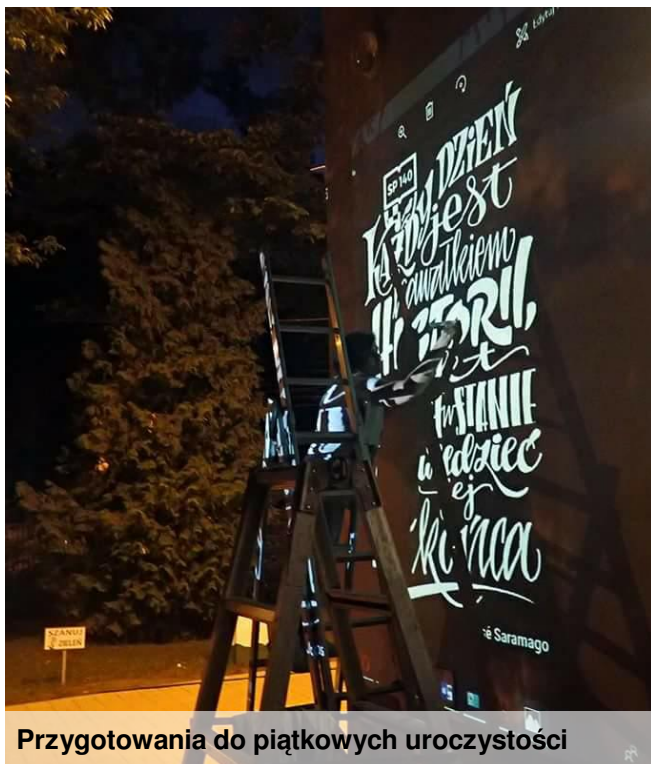 Edytuj
SP 140
KAżDy DZiEŃ
jest
kawałkiem
HiSTORII,
StANIE
ej
końca
é Saramago
SZANUJ
ZIELEŃ
Przygotowania do piątkowych uroczystości